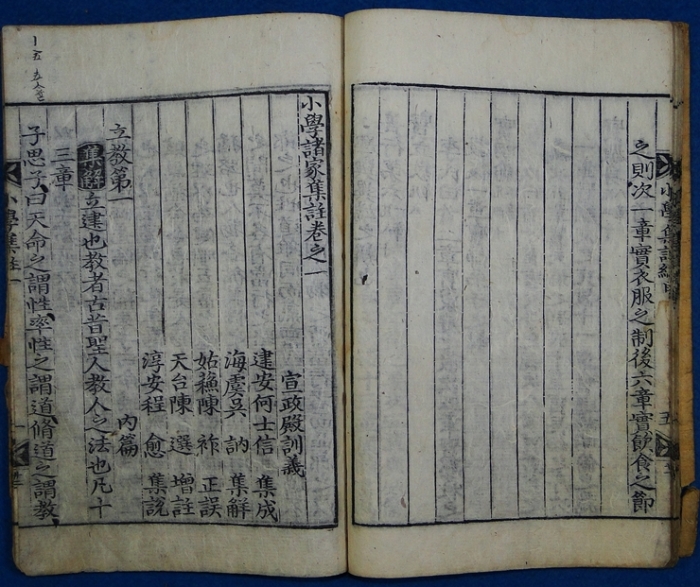 之則次一章實衣服之制後六章實飲食之節
小學諸家集註卷之一
宣政殿訓義
建安何士信 集成
海虞吳 訥 集解
姑蘓陳 祚 正誤
天台陳 選 增註
淳安程 愈 集說
立教第一 內篇
集解 立建也教者古昔聖人教人之法也凡十
三章
子思子曰天命之謂性率性之謂道脩道之謂教
小學集註一